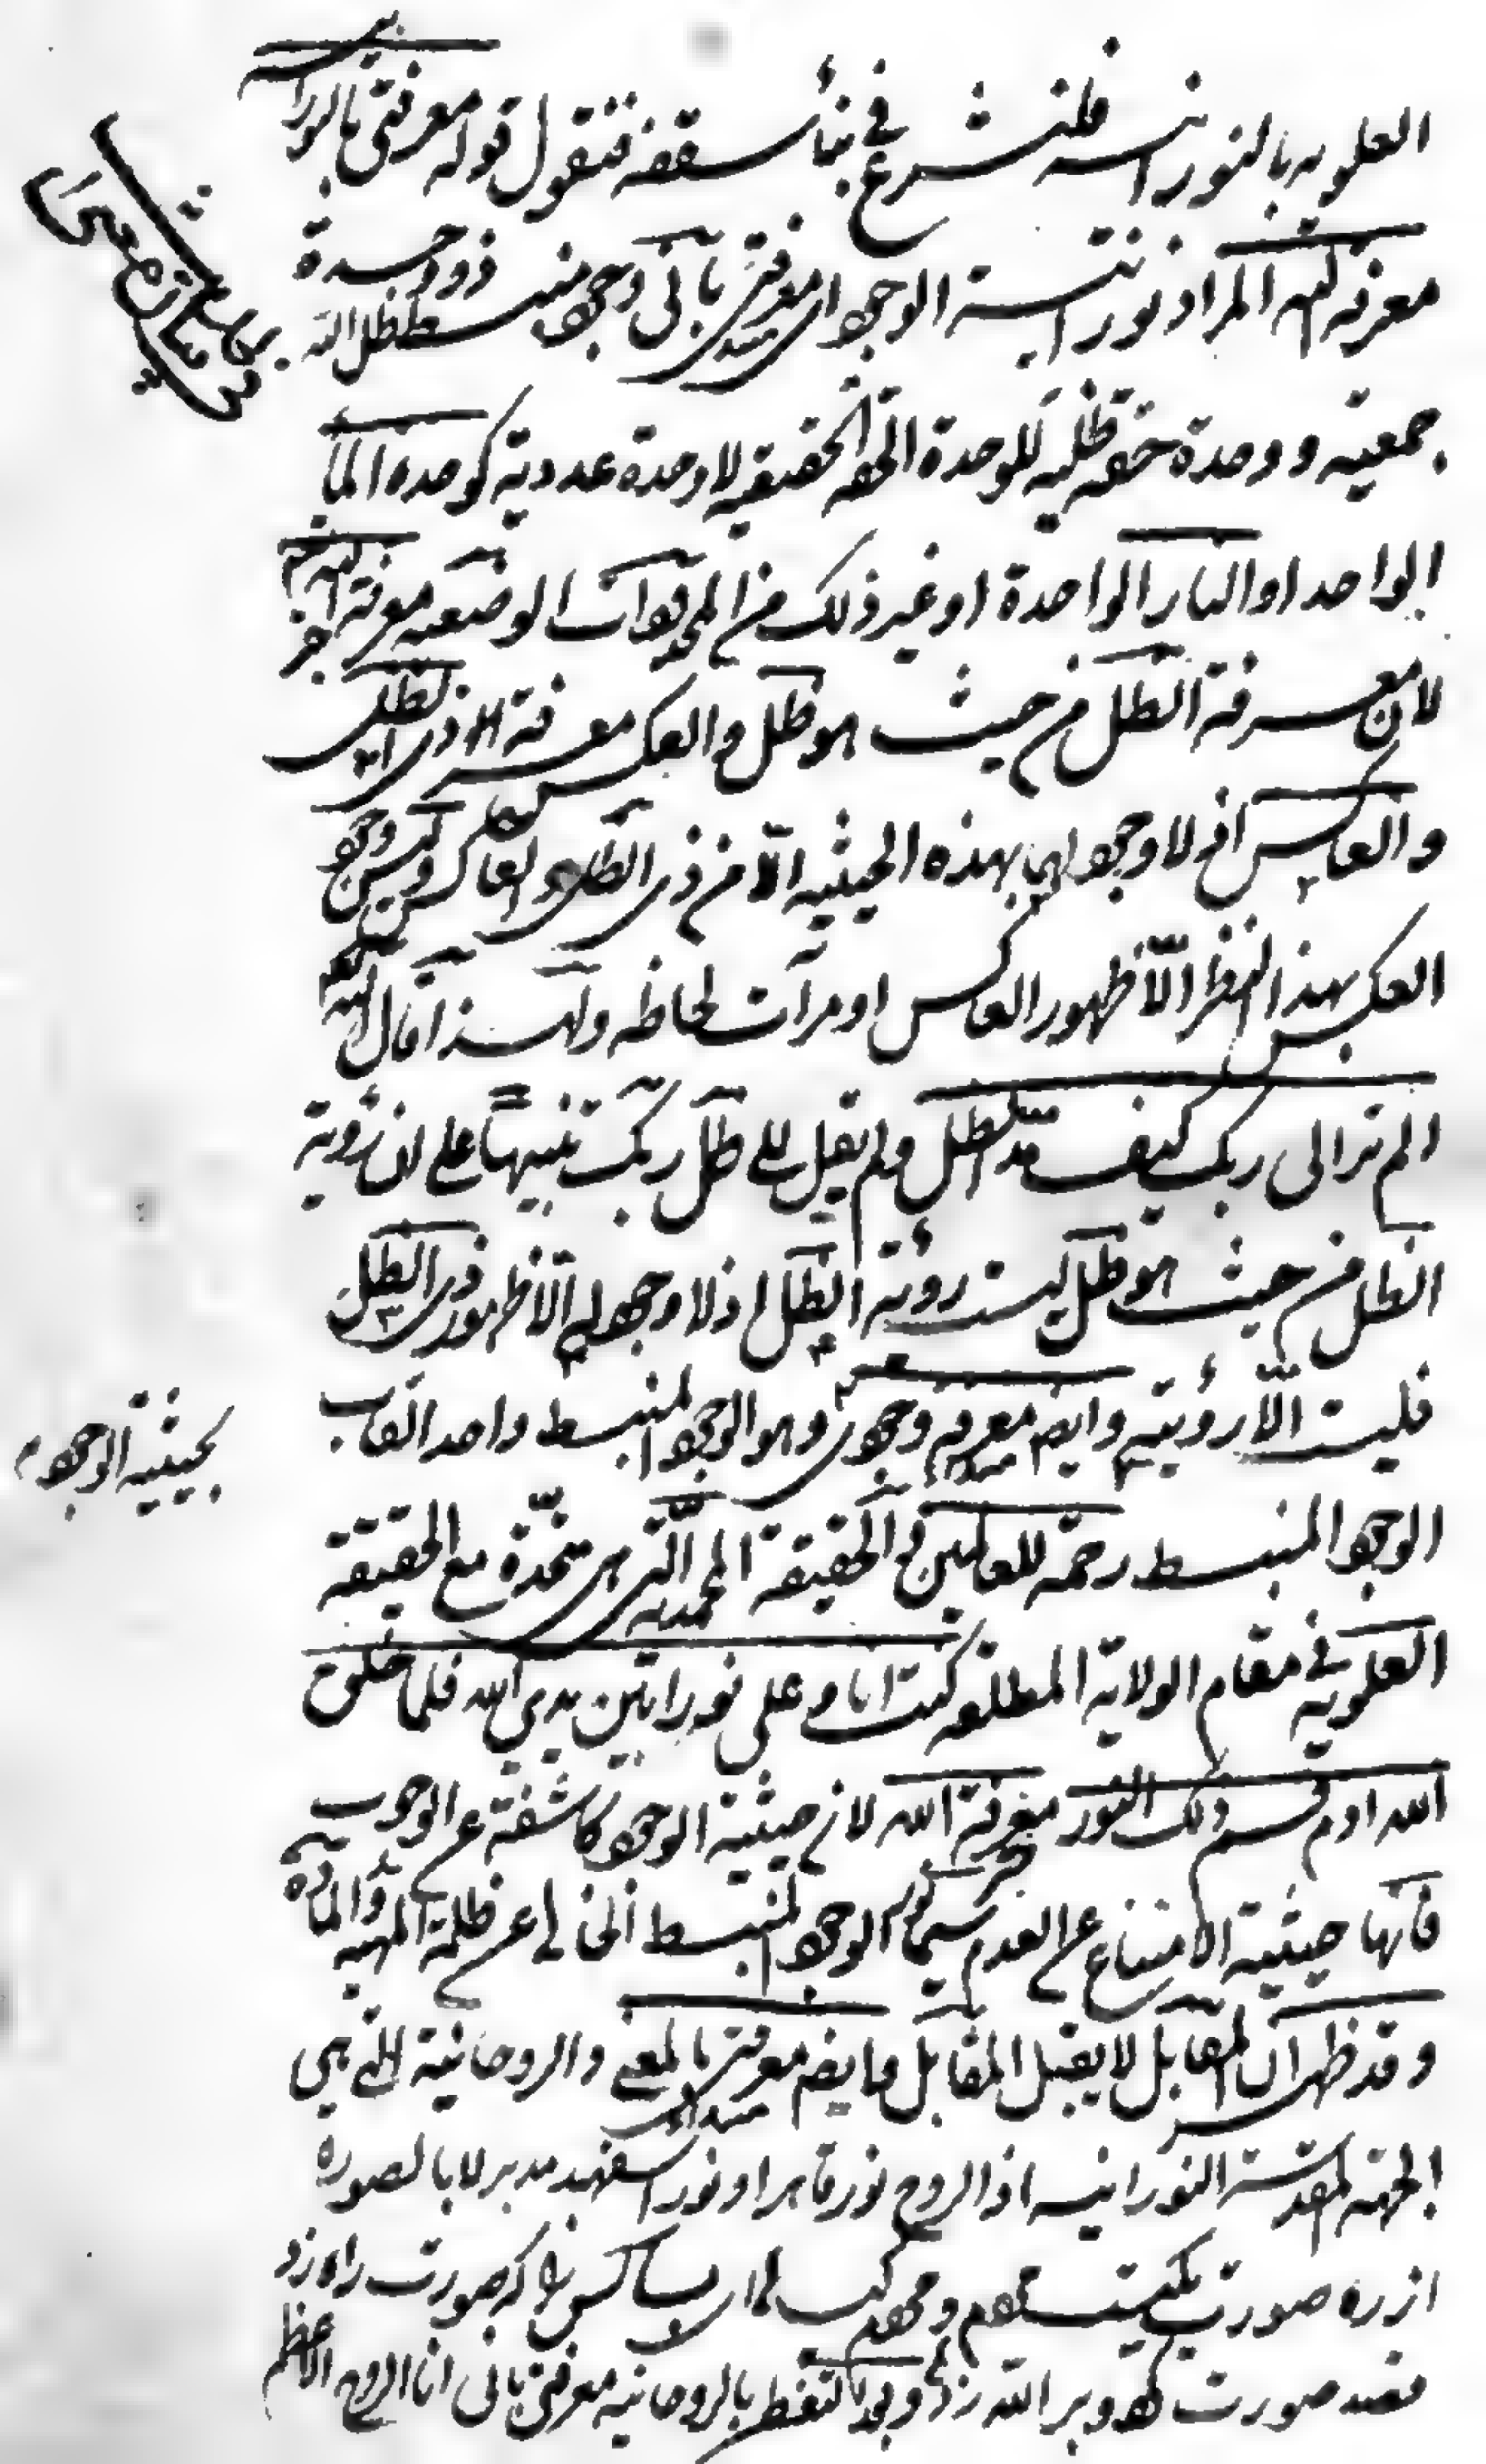 العلويه بالنورانيه فلنشرع في بناء سقفه فنقول قوله معرفتي بالنورانيه
معرفة الله المراد نورانيته الوجود اى معرفتى بانى وجود منبسط ظل الله ذو وحدة
جمعيه و وحدة حقه ظليه للوحدة الحقه الحقيقيه لا وحدة عدديه كوحدة الماء
الواحد او النار الواحدة او غير ذلك من المحدودات الوضعيه معرفة الله
لان معرفة الظل من حيث هو ظل والعكس معرفة لذى الظل
والعاكس اذ لا وجود لهما بهذه الحيثيه الا من ذى الظل والعاكس وليس وجود
العكس بهذا النظر الّا ظهور العاكس او مرآت لحاظه ولهذا قال الله
الم تر الى ربك كيف مد الظل ولم يقل الى ظل ربك تنبيهاً على ان رؤية
الظل من حيث هو ظل ليست رؤية الظل اذ لا وجود له الّا ظهور ذى الظل
فليست الّا رؤيته وايضا معرفة وجودى وهو الوجود المنبسط واحد القاب
بحيثية الوجود
الوجود المنبسط رحمة للعالمين والحقيقة المحمديه التى هى متحدة مع الحقيقة
العلويه فى مقام الولاية المطلقه كنت انا و على نورا بين يدى الله فلما خلق
الله ادم قسم ذلك النور معرفة الله لان حيثية الوجود كاشفة عن الوجوب
فانها حيثية الامتناع عن العدم سيما الوجود المنبسط الخالى عن ظلمة المهيه والماده
وقد ظهر ان المقابل لا يقبل المقابل وايضا معرفتى بالمعنى والروحانية التى هى
الجهة المقدسة النورانيه اذ الروح نور قاهر او نور اسفهبد مدبر لا بالصوره
از ره صورت يكيست اى بسا كس را كه صورت راه زد
قصد صورت كرد و بر الله زد وبعد التفطن بالروحانيه معرفتى بانى انا الروح الاعظم